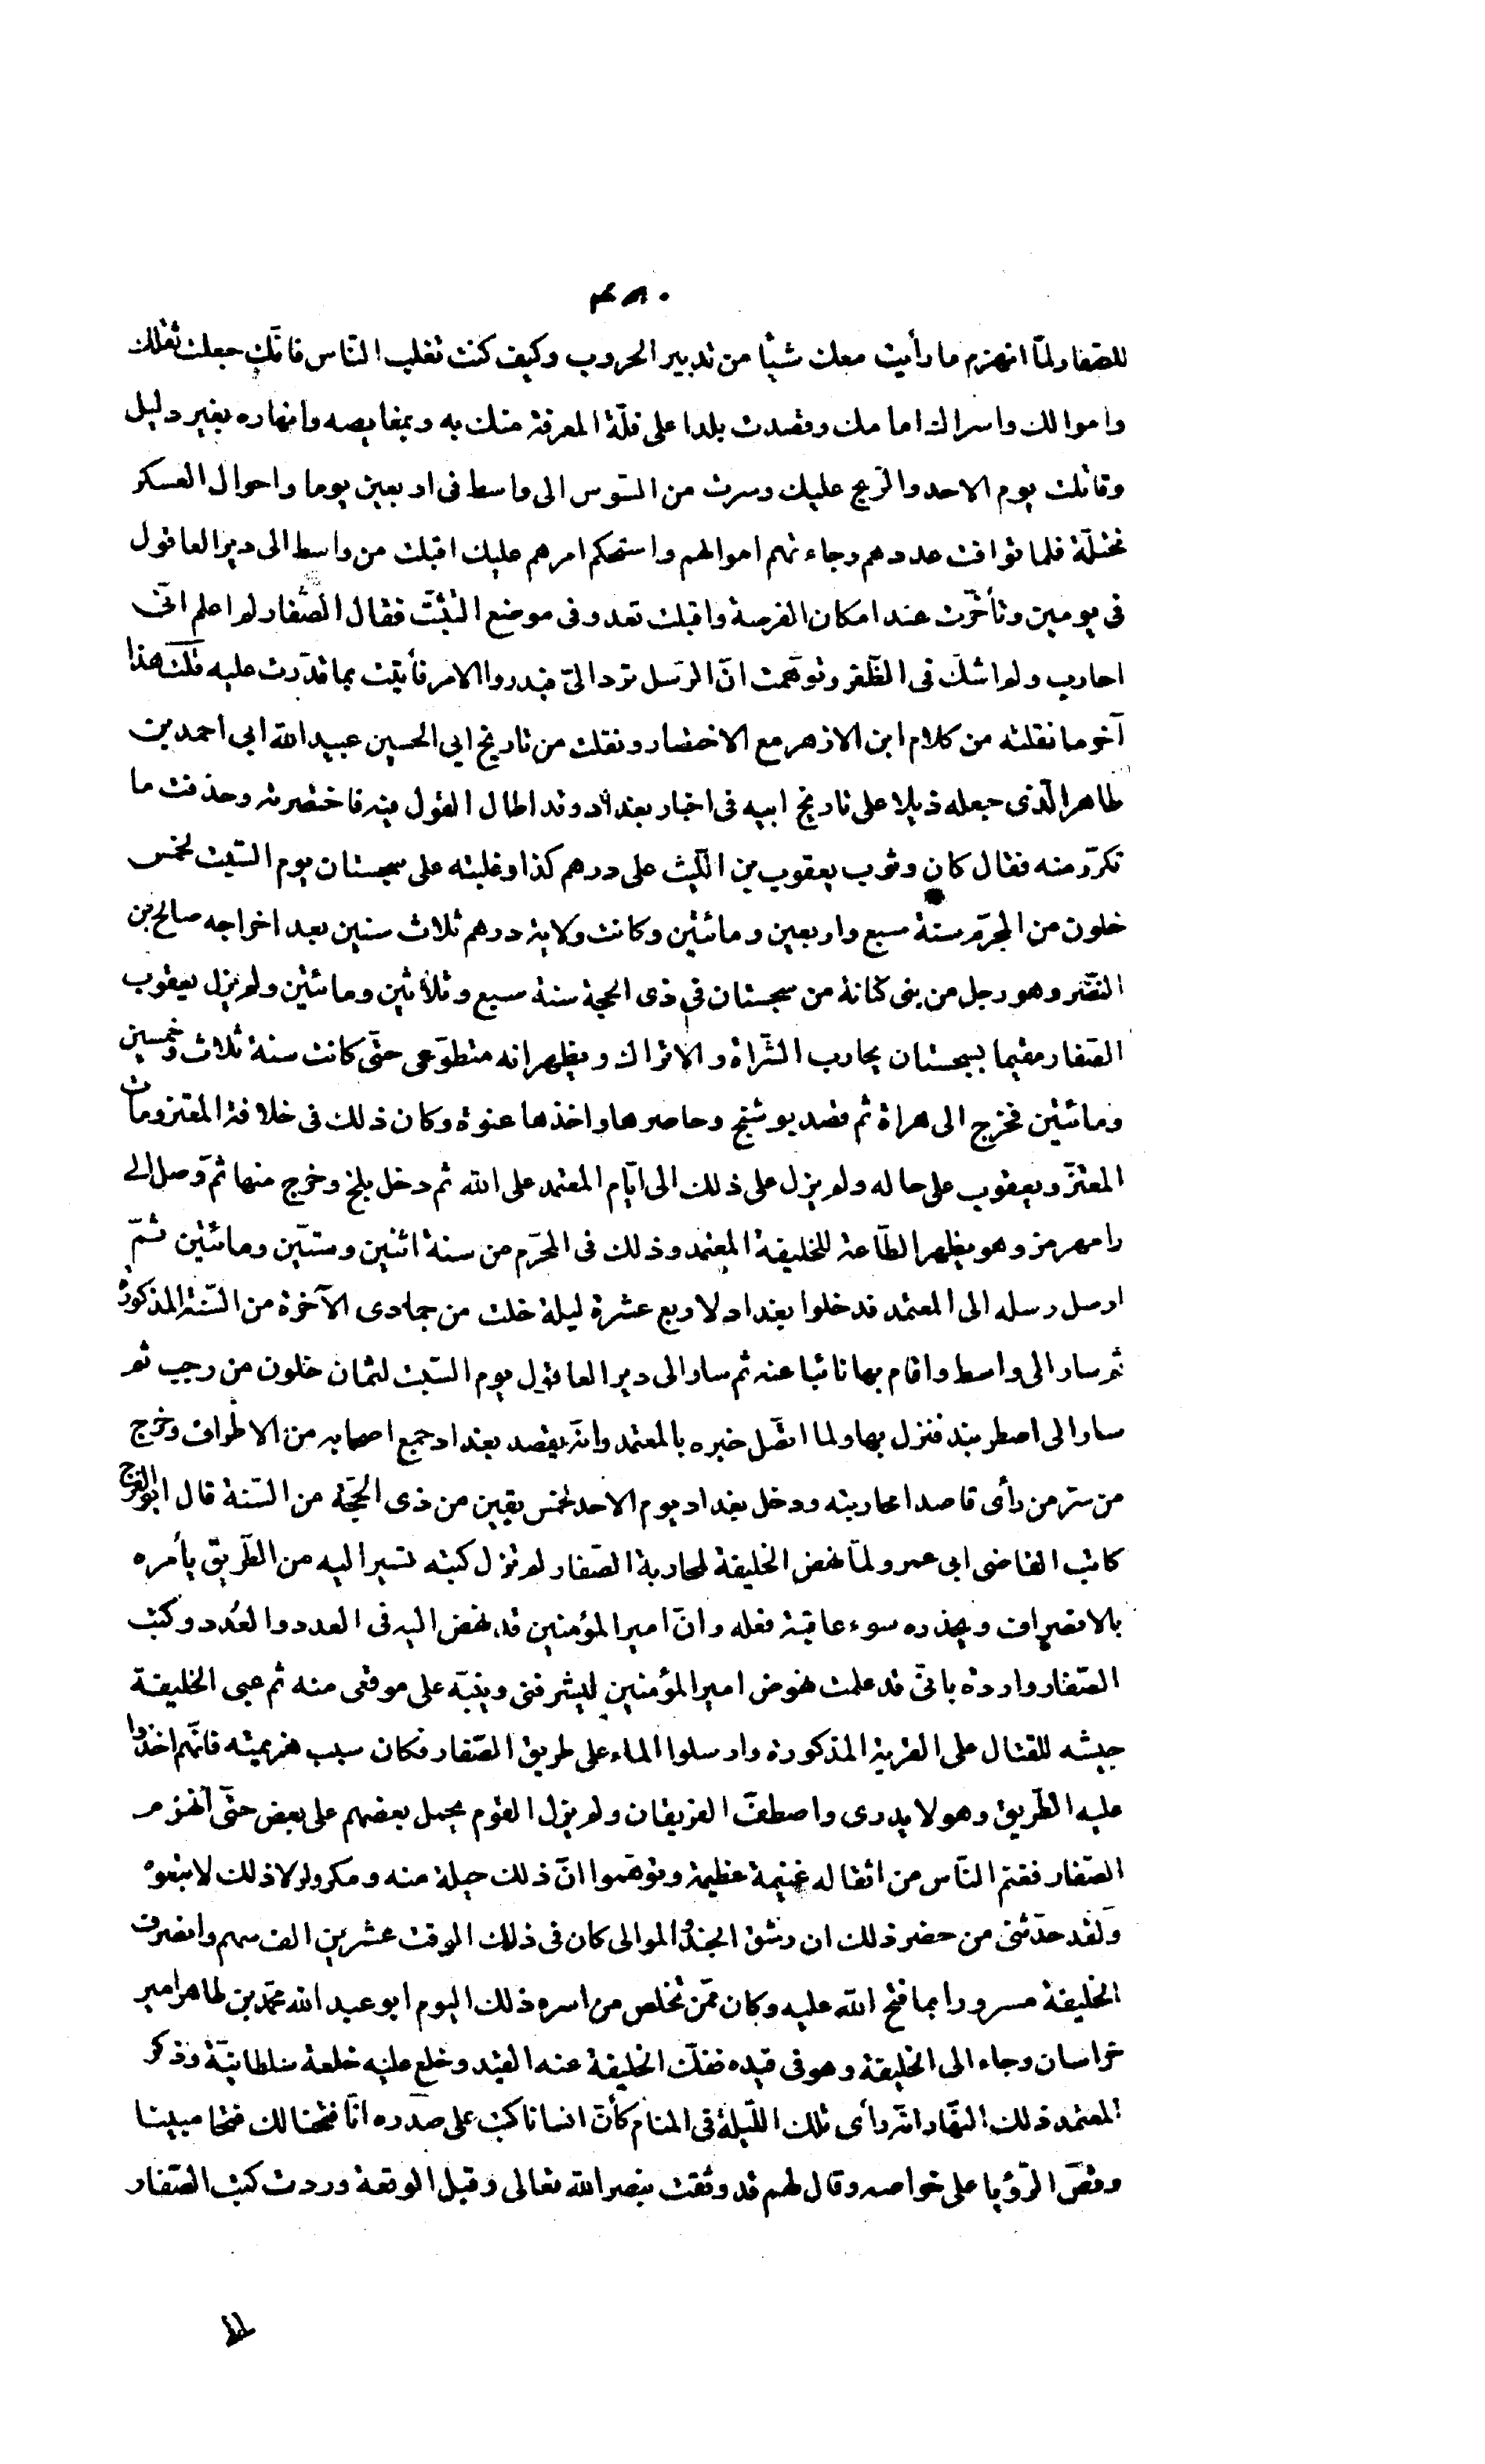 للصفار لمّا انهزم ما رأيت معك شيأ من تدبير الحروب وكيف كنت تغلب النّاس فانّك جعلت ثقلك
واموالك واسراك امامك وقصدت بلدا على قلّة المعرفة منك به وبمغايصه وانهاره بغير دليل
وقاتلت يوم الاحد والرّيح عليك وسرت من السّوس الى واسط فى اربعين يوما واحوال العسكر
مختلّة فلما توافت عددهم وجاءتهم اموالهم واستحكم امرهم عليك اقبلت من واسط الى دير العاقول
فى يومين وتأخّرت عند امكان الفرصة واقبلت تعدو فى موضع التثبّت فقال الصّفار لم اعلم انّى
احارب ولم اشك فى الظّفر وتوهّمت انّ الرّسل ترد الىّ فبدروا الامر فأتيت بما قدّرت عليه قلت هذا
آخر ما نقلته من كلام ابن الازهر مع الاختصار ونقلت من تاريخ ابي الحسين عبيد الله ابى احمد بن
طاهر الّذى جعله ذيلا على تاريخ ابيه فى اخبار بغداد وقد اطال القول فيه فاختصرته وحذفت ما
تكرّر منه فقال كان وثوب يعقوب بن اللّيث على درهم كذا وغلبته على سجستان يوم السّبت لخمس
خلون من المحرّم سنة سبع واربعين ومائتين وكانت ولاية درهم ثلاث سنين بعد اخراجه صالح بن
النضر وهو رجل من بنى كنانة من سجستان فى ذى الحجة سنة سبع وثلاثين ومائتين ولم يزل يعقوب
الصّفار مقيما بسجستان يحارب الشّراة والاتراك ويظهر انه متطوّعى حتّى كانت سنة ثلاث وخمسين
ومائتين فخرج الى هراة ثم قصد بوشنج وحاصرها واخذها عنوة وكان ذلك فى خلافة المعتز ومات
المعتزّ ويعقوب على حاله ولم يزل على ذلك الى ايّام المعتمد على الله ثم دخل بلخ وخرج منها ثمّ وصل الى
رامهرمز وهو يظهر الطّاعة للخليفة المعتمد وذلك فى المحرّم من سنة اثنين وستّين ومائتين ثمّ
ارسل رسله الى المعتمد فدخلوا بغداد لاربع عشرة ليلة خلت من جمادى الآخرة من السّنة المذكورة
ثم سار الى واسط واقام بها نائبا عنه ثم سار الى دير العاقول يوم السّبت لثمان خلون من رجب ثم
سار الى اصطربند فنزل بها ولما اتّصل خبره بالمعتمد وانّه يقصد بغداد جمع اصحابه من الاطراف وخرج
من سرّ من رأى قاصدا محاربته ودخل بغداد يوم الاحد لخمس بقين من ذى الحجّة من السّنة قال ابو الفرج
كاتب القاضى ابى عمر ولمّا نهض الخليفة لمحاربة الصّفار لم تزل كتبه تسير اليه من الطّريق يأمره
بالانصراف ويحذره سوء عاقبة فعله وانّ امير المؤمنين قد نهض اليه فى العدد والعُدد وكتب
الصّفار واردة بانّى قد علمت نهوض امير المؤمنين ليشرفنى وينبّه على موقعى منه ثم عبى الخليفة
جيشه للقتال على القرية المذكورة وارسلوا الماء على طريق الصّفار فكان سبب هزيمته فانّهم اخذوا
عليه الطّريق وهو لا يدرى واصطفّ الفريقان ولم يزل القوم يحمل بعضهم على بعض حتّى انهزم
الصّفار فغنم النّاس من اثقاله غنيمة عظيمة وتوهّموا انّ ذلك حيلة منه ومكر ولولا ذلك لاتبعوه
ولقد حدّثنى من حضر ذلك ان رشق الجند والموالى كان فى ذلك الوقت عشرين الف سهم وانصرف
الخليفة مسرورا بما فتح الله عليه وكان ممّن تخلص من اسره ذلك اليوم ابو عبد الله محمّد بن طاهر امير
خراسان وجاء الى الخليفة وهو فى قيده ففكّ الخليفة عنه القيد وخلع عليه خلعة سلطانيّة وذكر
المعتمد ذلك النّهار انّه رأى تلك اللّيلة فى المنام كأنّ انسانا كتب على صدره انّا فتحنا لك فتحا مبينا
وقصّ الرّؤيا على خواصه وقال لهم قد وثقت بنصر الله تعالى وقبل الوقعة وردت كتب الصّفار